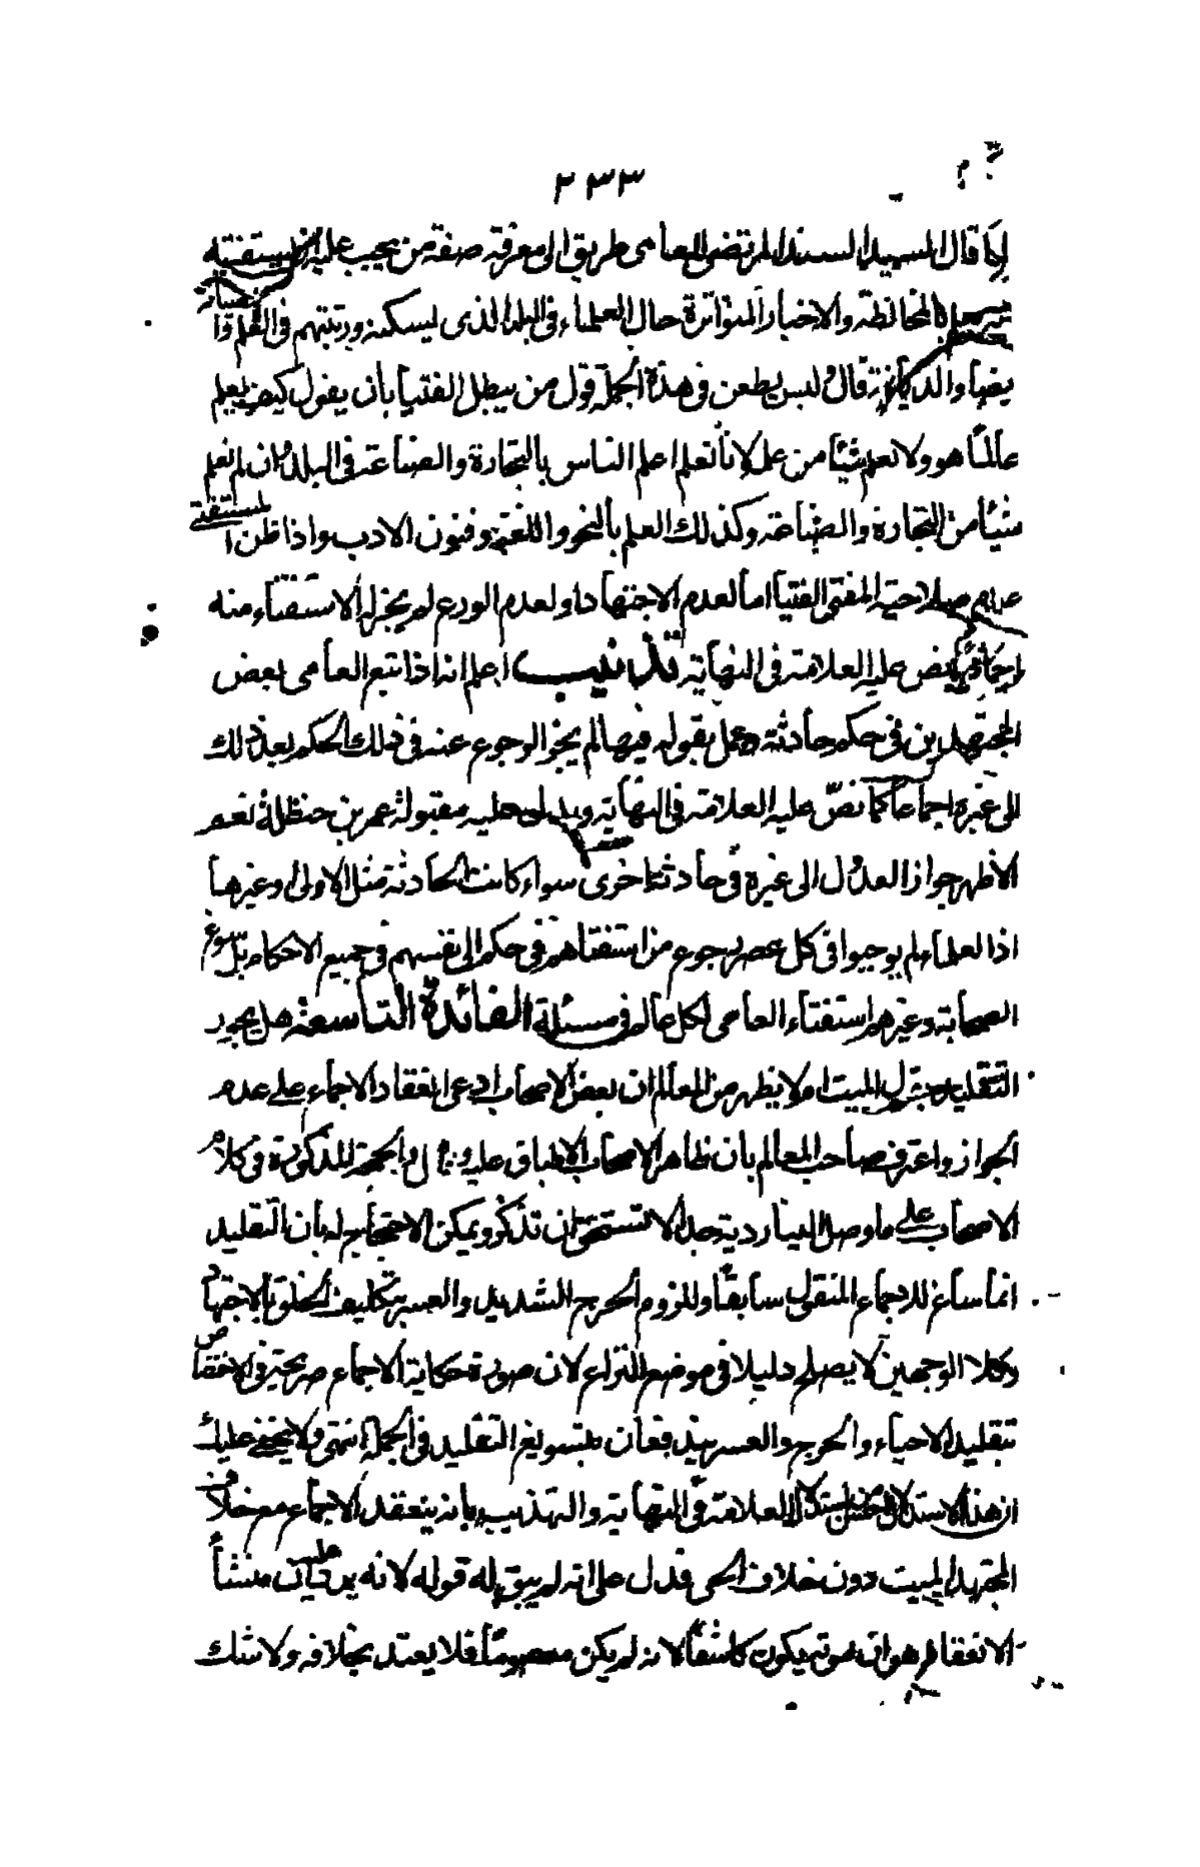 ٢٣٣
قال السيد السند المرتضى للعامى طريق الى معرفة صفة من يجب عليه ان يستفتيه
بالمخالطة والاخبار المتواترة حال العلماء فى البلد الذى يسكنه ورتبتهم فى العلم و
الصيانة
والديانة قال وليس يطعن فى هذه الجملة قول من يبطل الفتيا بأن يقول كيف يعلم
عالماً هو ولا تعلم شيئاً من علمه لانا نعلم اعلم الناس بالتجارة والصناعة فى البلد وان لم نعلم
شيئاً من التجارة والصناعة وكذلك العلم بالنحو واللغة وفنون الادب واذا ظن المستفتى
عدم صلاحية المفتى للفتيا اما لعدم الاجتهاد او لعدم الورع لم يجز له الاستفتاء منه
اجماعاً نص عليه العلامة فى النهاية تذنيب اعلم انه اذا تبع العامى بعض
المجتهدين فى حكم حادثة وعمل بقوله فيها لم يجز الرجوع عنه فى ذلك الحكم بعد ذلك
الى غيره اجماعاً كما نصّ عليه العلامة فى النهاية ويدل عليه مقبولة عمر بن حنظلة نعم
الاظهر جواز العدول الى غيره فى حادثة اخرى سواء كانت الحادثة مثل الاولى او غيرها
اذ العلماء لم يوجبوا فى كل عصر رجوع من استفتاهم فى حكم الى نفسهم فى جميع الاحكام بل سوغ
الصحابة وغيرهم استفتاء العامى لكل عالم فى مسئلة الفائدة التاسعة هل يجوز
التقليد المیت ام لا يظهر من المعالم ان بعض الاصحاب ادعى انعقاد الاجماع على عدم
الجواز واعترف صاحب المعالم بان ظاهر الاصحاب الاطباق عليه وقال والحجة المذكورة فى كلام
الاصحاب على ما وصل الينا ردية جداً لا تستحق ان تذكر ويمكن الاحتجاج له بأن التقليد
انما ساغ للاجماع المنقول سابقاً وللزوم الحرج الشديد والعسر بتكليف الخلق بالاجتهاد
وكلا الوجهين لا يصلح دليلا فى موضع النزاع لان صورة حكاية الاجماع صريحة فى الاختصاص
بتقليد الاحياء والحرج والعسر يندفعان بتسويغ التقليد فى الجملة انتهى ولا يخفى عليك
ان هذا الاستدلال احسن من استدلال العلامة فى النهاية والتهذيب بانه ينعقد الاجماع مع خلاف
المجتهد الميت دون خلاف الحى فدل على انه لم يبق له قوله لانه يرد عليه ان منشأ
الانعقاد هو ان بموته يكون كاشفاً لانه لم يكن معصوماً فلا يعتد بخلافه ولا شك